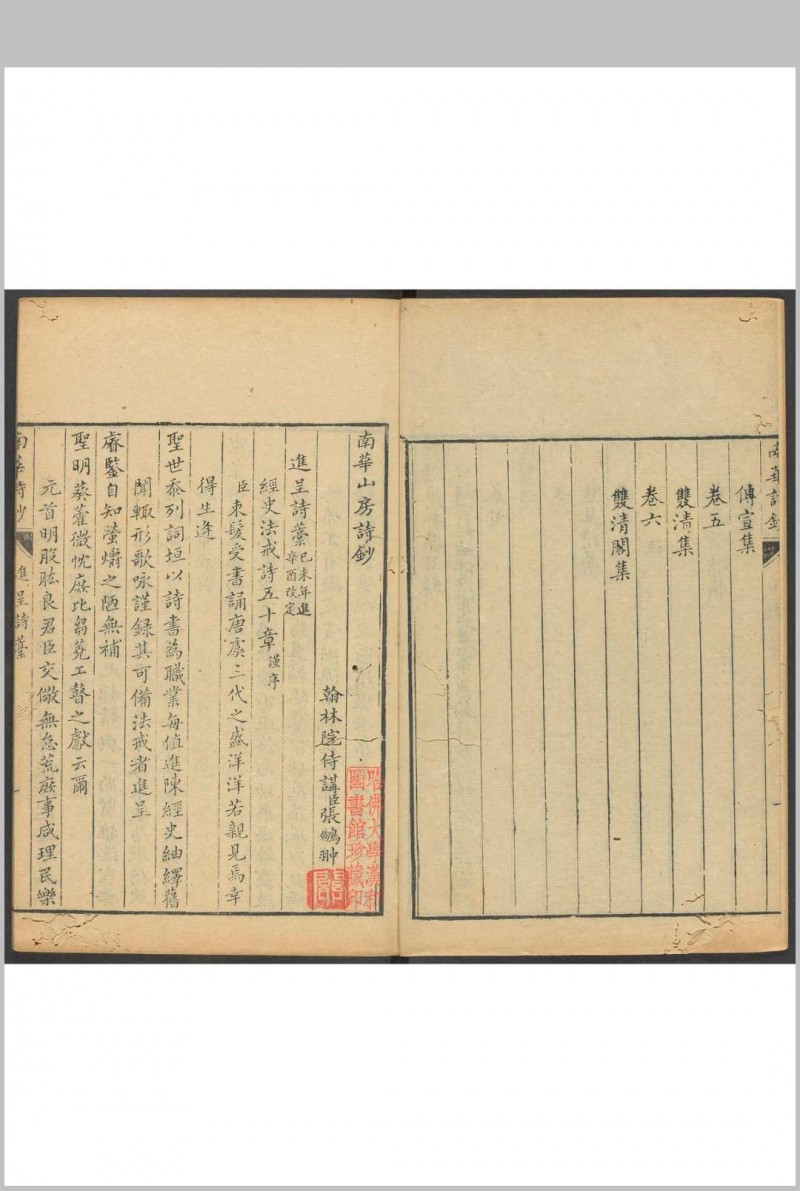 南華詩鈔
傳宣集
卷五
雙清集
卷六
雙清閣集
南華山房詩鈔
翰林院侍講臣張鵬翀
哈佛大學漢和圖書館珍藏印
進呈詩藁己未年進辛酉改定
經史法戒詩五十章謹序
臣束髮受書誦唐虞三代之盛洋洋若親見焉幸
得生逢
聖世忝列詞垣以詩書為職業每值進陳經史紬繹舊
聞輙形歌咏謹錄其可備法戒者進呈
睿鑒自知螢爝之陋無補
聖明葵藿微忱庶比芻蕘工瞽之獻云爾
元首明股肱良君臣交儆無怠荒庶事咸理民樂
南華詩鈔
進呈詩藁